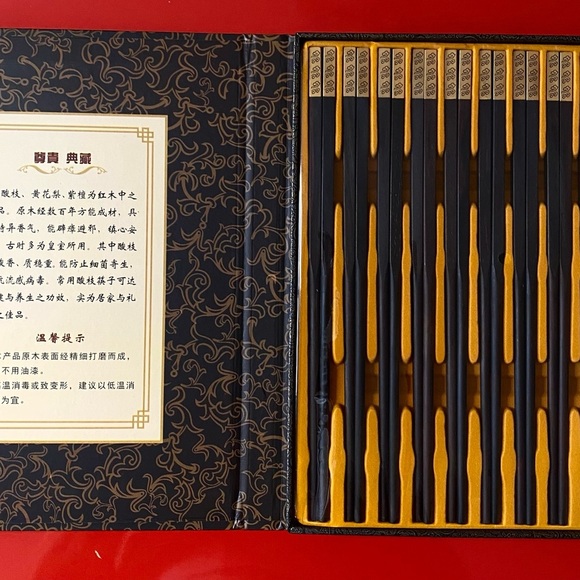 尊貴 典藏
酸枝、黄花梨、紫檀为红木中之
品。原木经数百年方能成材，具
特异香气，能辟瘴避邪，镇心安
古时多为皇室所用。其中酸枝
酸香、质稳重，能防止细菌寄生，
抗流感病毒。常用酸枝筷子可达
康与养生之功效，实为居家与礼
之佳品。
温馨提示
本产品原木表面经精细打磨而成，
不用油漆。
高温消毒或致变形，建议以低温消
为宜。